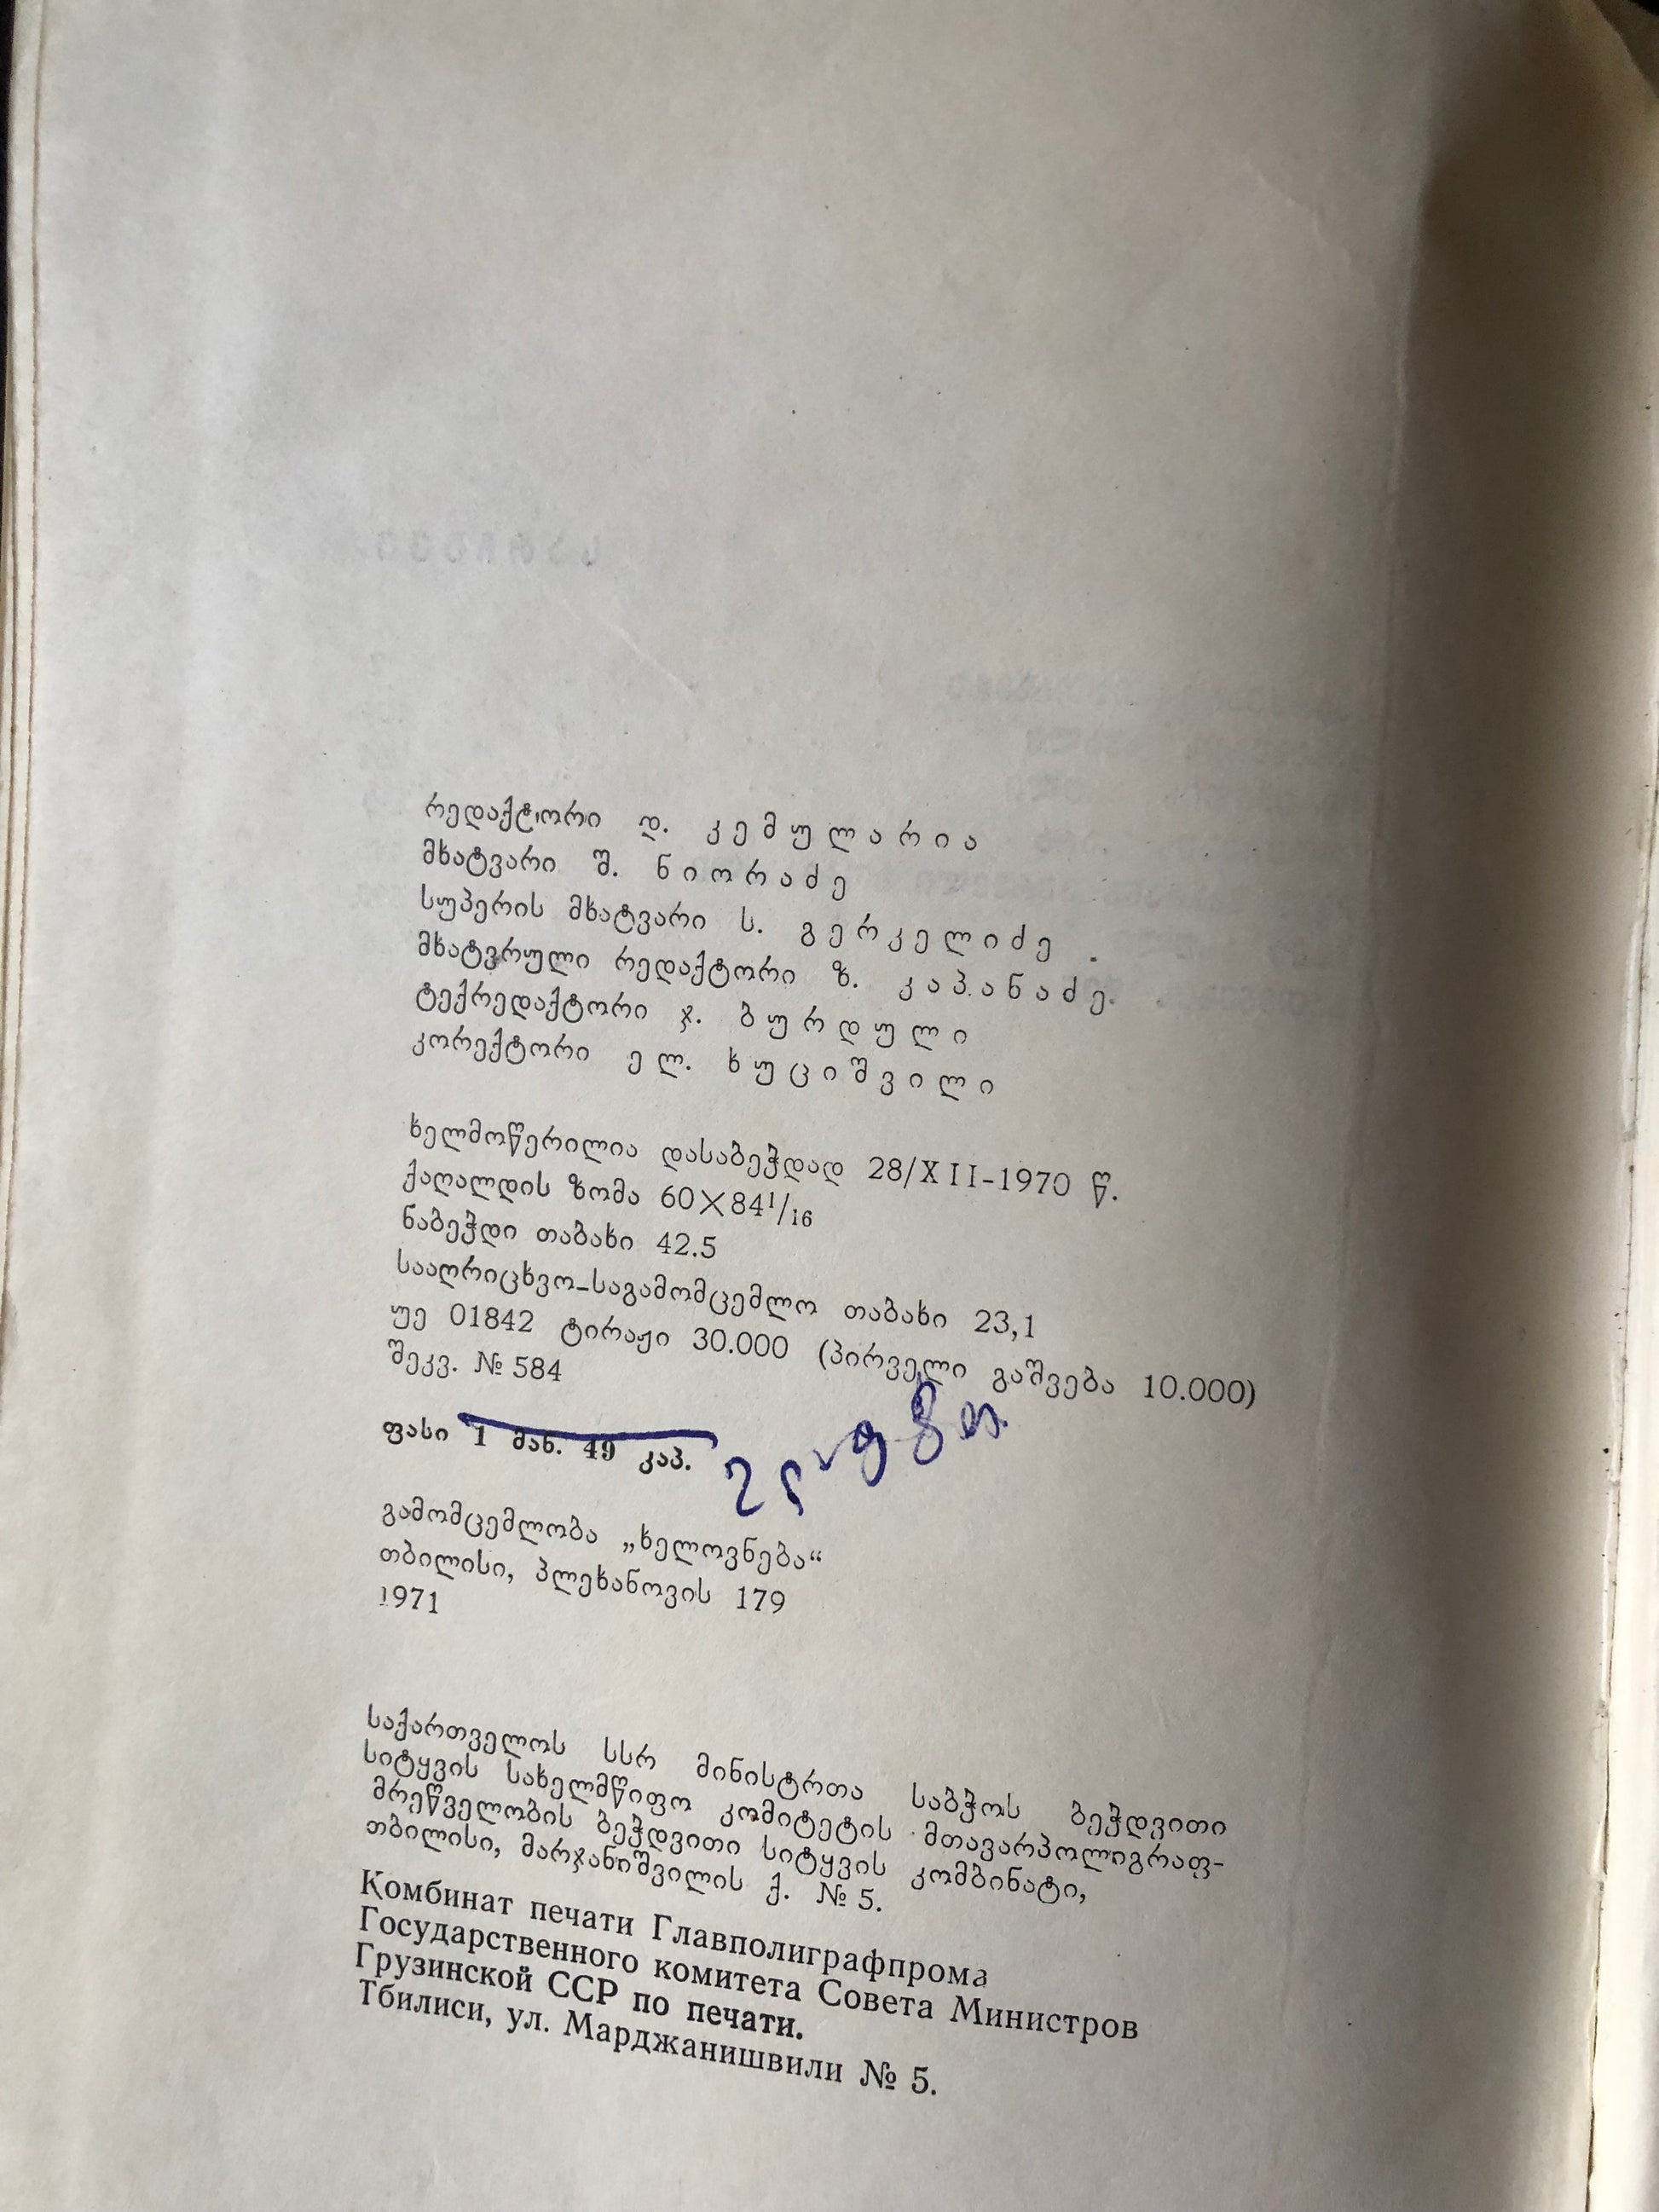 რედაქტორი დ. კემულარია
მხატვარი შ. ნიორაძე
სუპერის მხატვარი ს. გერკელიძე
მხატვრული რედაქტორი ზ. კაპანაძე.
ტექრედაქტორი ჯ. ბურდული
კორექტორი ელ. ხუციშვილი
ხელმოწერილია დასაბეჭდად 28/XII-1970 წ.
ქაღალდის ზომა 60×84¹/₁₆
ნაბეჭდი თაბახი 42.5
სააღრიცხვო-საგამომცემლო თაბახი 23,1
უე 01842 ტირაჟი 30.000 (პირველი გაშვება 10.000)
შეკვ. № 584
ფასი 1 მან. 49 კაპ.
გამომცემლობა „ხელოვნება“
თბილისი, პლეხანოვის 179
1971
საქართველოს სსრ მინისტრთა საბჭოს ბეჭდვითი
სიტყვის სახელმწიფო კომიტეტის მთავარპოლიგრაფ-
მრეწველობის ბეჭდვითი სიტყვის კომბინატი,
თბილისი, მარჯანიშვილის ქ. № 5.
Комбинат печати Главполиграфпрома
Государственного комитета Совета Министров
Грузинской ССР по печати.
Тбилиси, ул. Марджанишвили № 5.